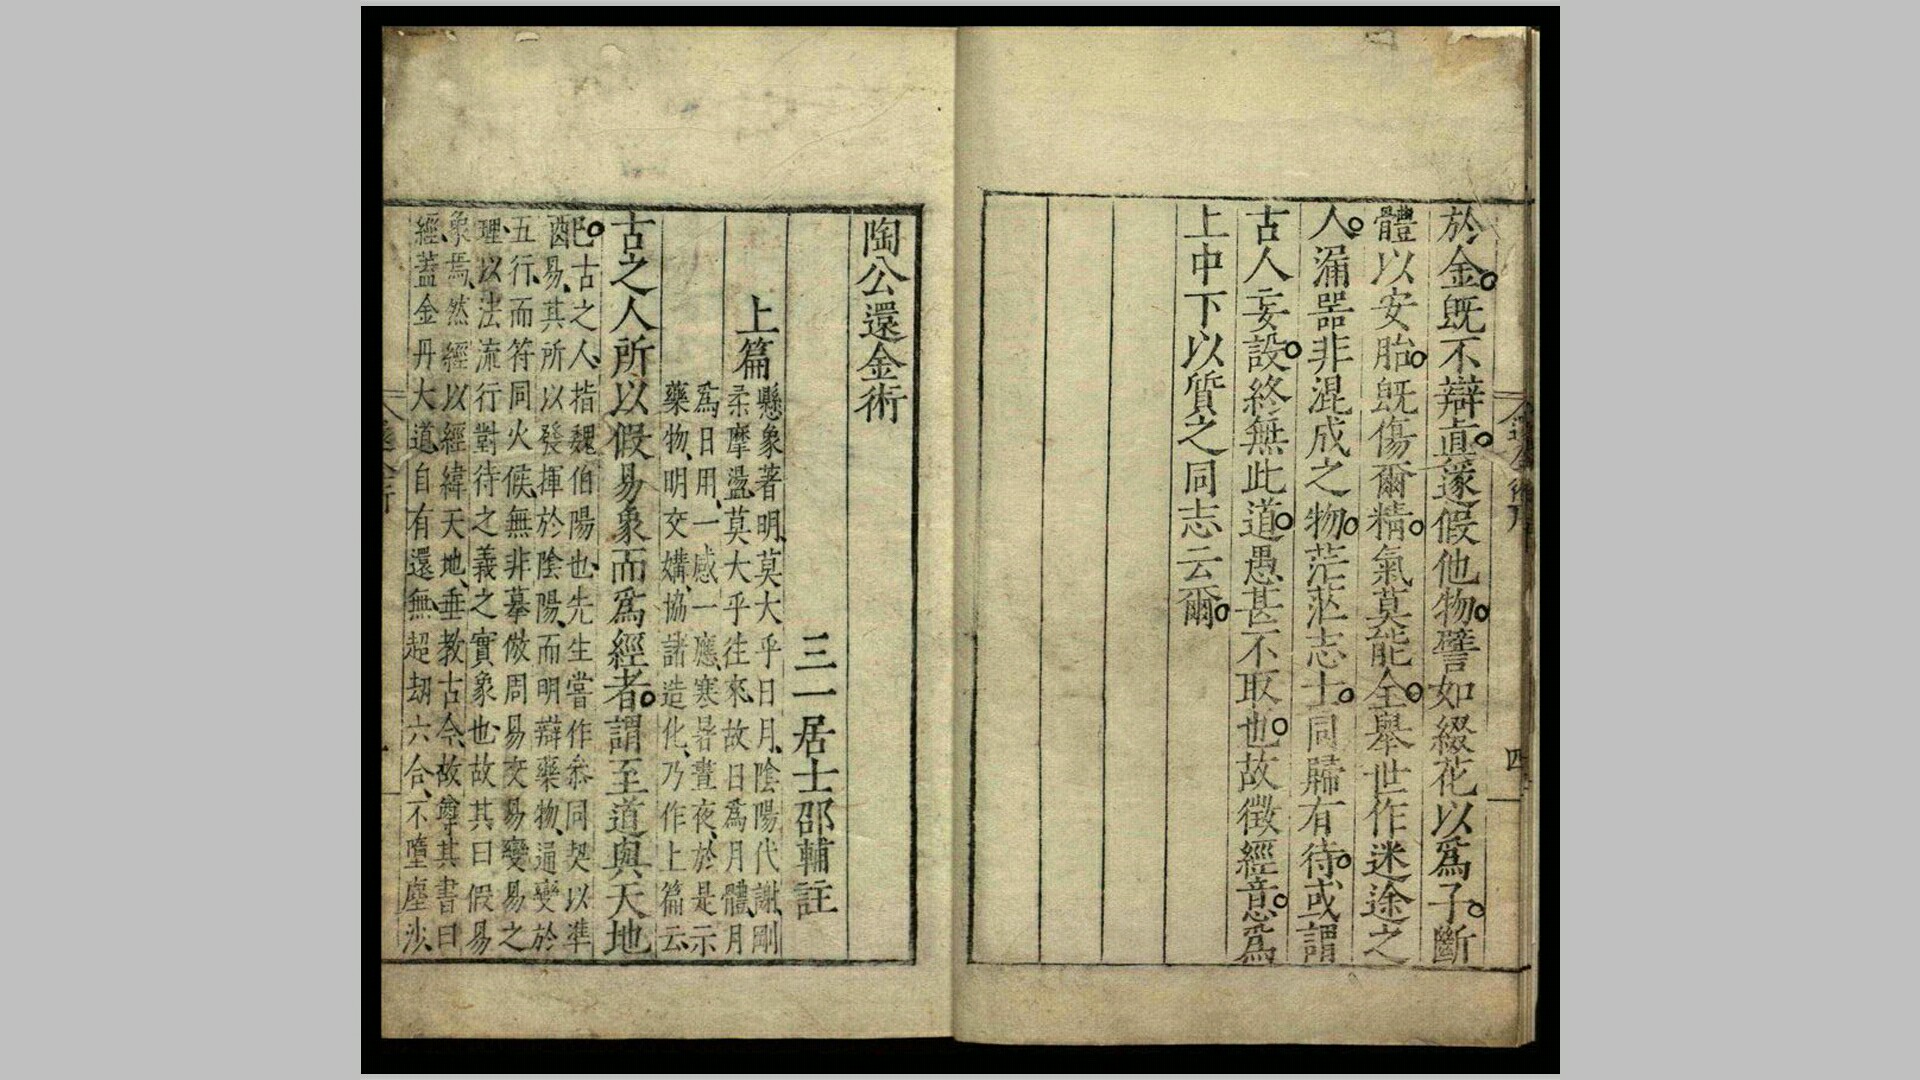 於金。既不辯真。遂假他物。譬如綴花以爲子。斷
體以安胎。既傷爾精。氣莫能全。舉世作迷途之
人。漏器非混成之物。茫茫志士。同歸有待。或謂
古人妄設。終無此道。愚甚不取也。故徵經意。爲
上中下以質之同志云爾。
陶公還金術
三一居士邵輔註
上篇
懸象著明、莫大乎日月、陰陽代謝、剛
柔摩盪、莫大乎往來、故日爲月體、月
爲日用、一感一應、寒暑晝夜、於是示
藥物、明交媾、協諸造化、乃作上篇云、
古之人所以假易象而爲經者。謂至道與天地
配。
古之人、指魏伯陽也、先生嘗作叅同契以準
易、其所以發揮於陰陽、而明辯藥物、通變於
五行、而符同火候、無非摹倣周易交易變易之
理、以法流行對待之義之實象也、故其曰假易
象焉、然經以經緯天地、垂教古今、故尊其書曰
經、蓋金丹大道、自有還無、超劫六合、不墮塵沙、